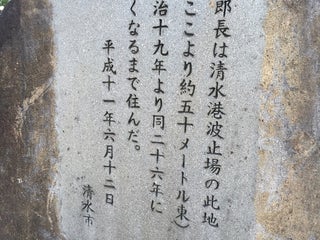 郎長は清水港波止場の此地
ここより約五十メートル東）
治十九年より同二十六年に
くなるまで住んだ。
平成十一年六月十二日
清水市